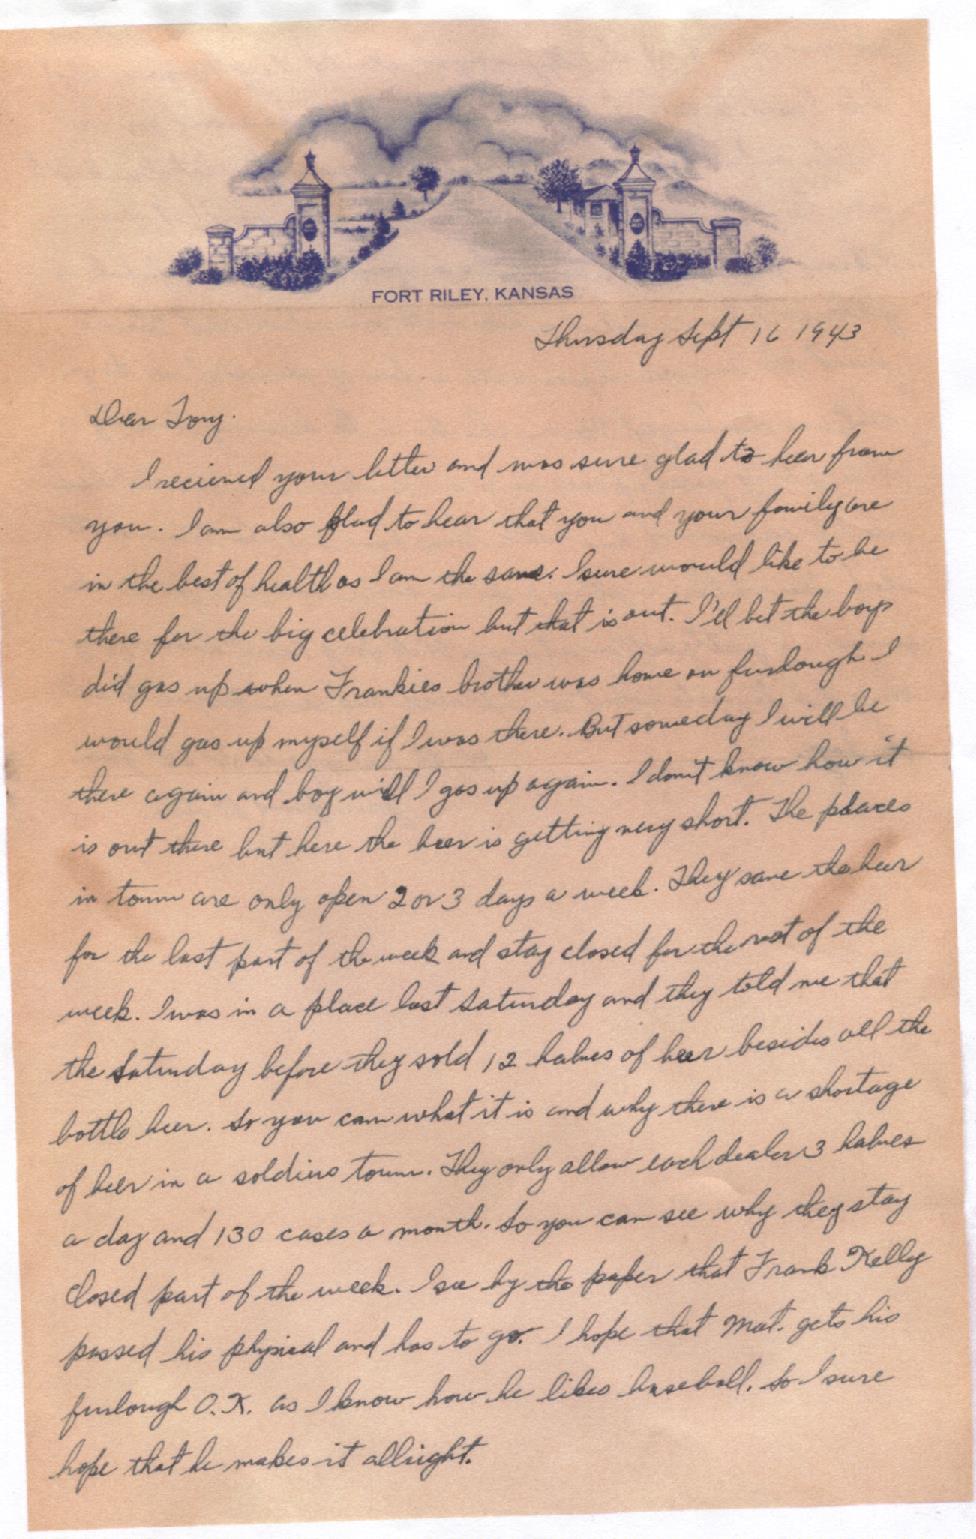 FORT RILEY, KANSAS
Thursday Sept 16 1943
Dear Tony.
I recieved your letter and was sure glad to hear from
you. I am also glad to hear that you and your family are
in the best of health as I am the same. I sure would like to be
there for the big celebration but that is out. I'll bet the boys
did gas up when Frankies brother was home on furlough I
would gas up myself if I was there. But someday I will be
there again and boy will I gas up again. I don't know how it
is out there but here the beer is getting very short. The places
in town are only open 2 or 3 days a week. They save the beer
for the last part of the week and stay closed for the rest of the
week. I was in a place last Saturday and they told me that
the Saturday before they sold 12 halves of beer besides all the
bottle beer. So you can what it is and why there is a shortage
of beer in a soldiers town. They only allow each dealer 3 halves
a day and 130 cases a month. So you can see why they stay
closed part of the week. I see by the paper that Frank Kelly
passed his physical and has to go. I hope that Mat. gets his
furlough O.K. as I know how he likes baseball. So I sure
hope that he makes it allright.